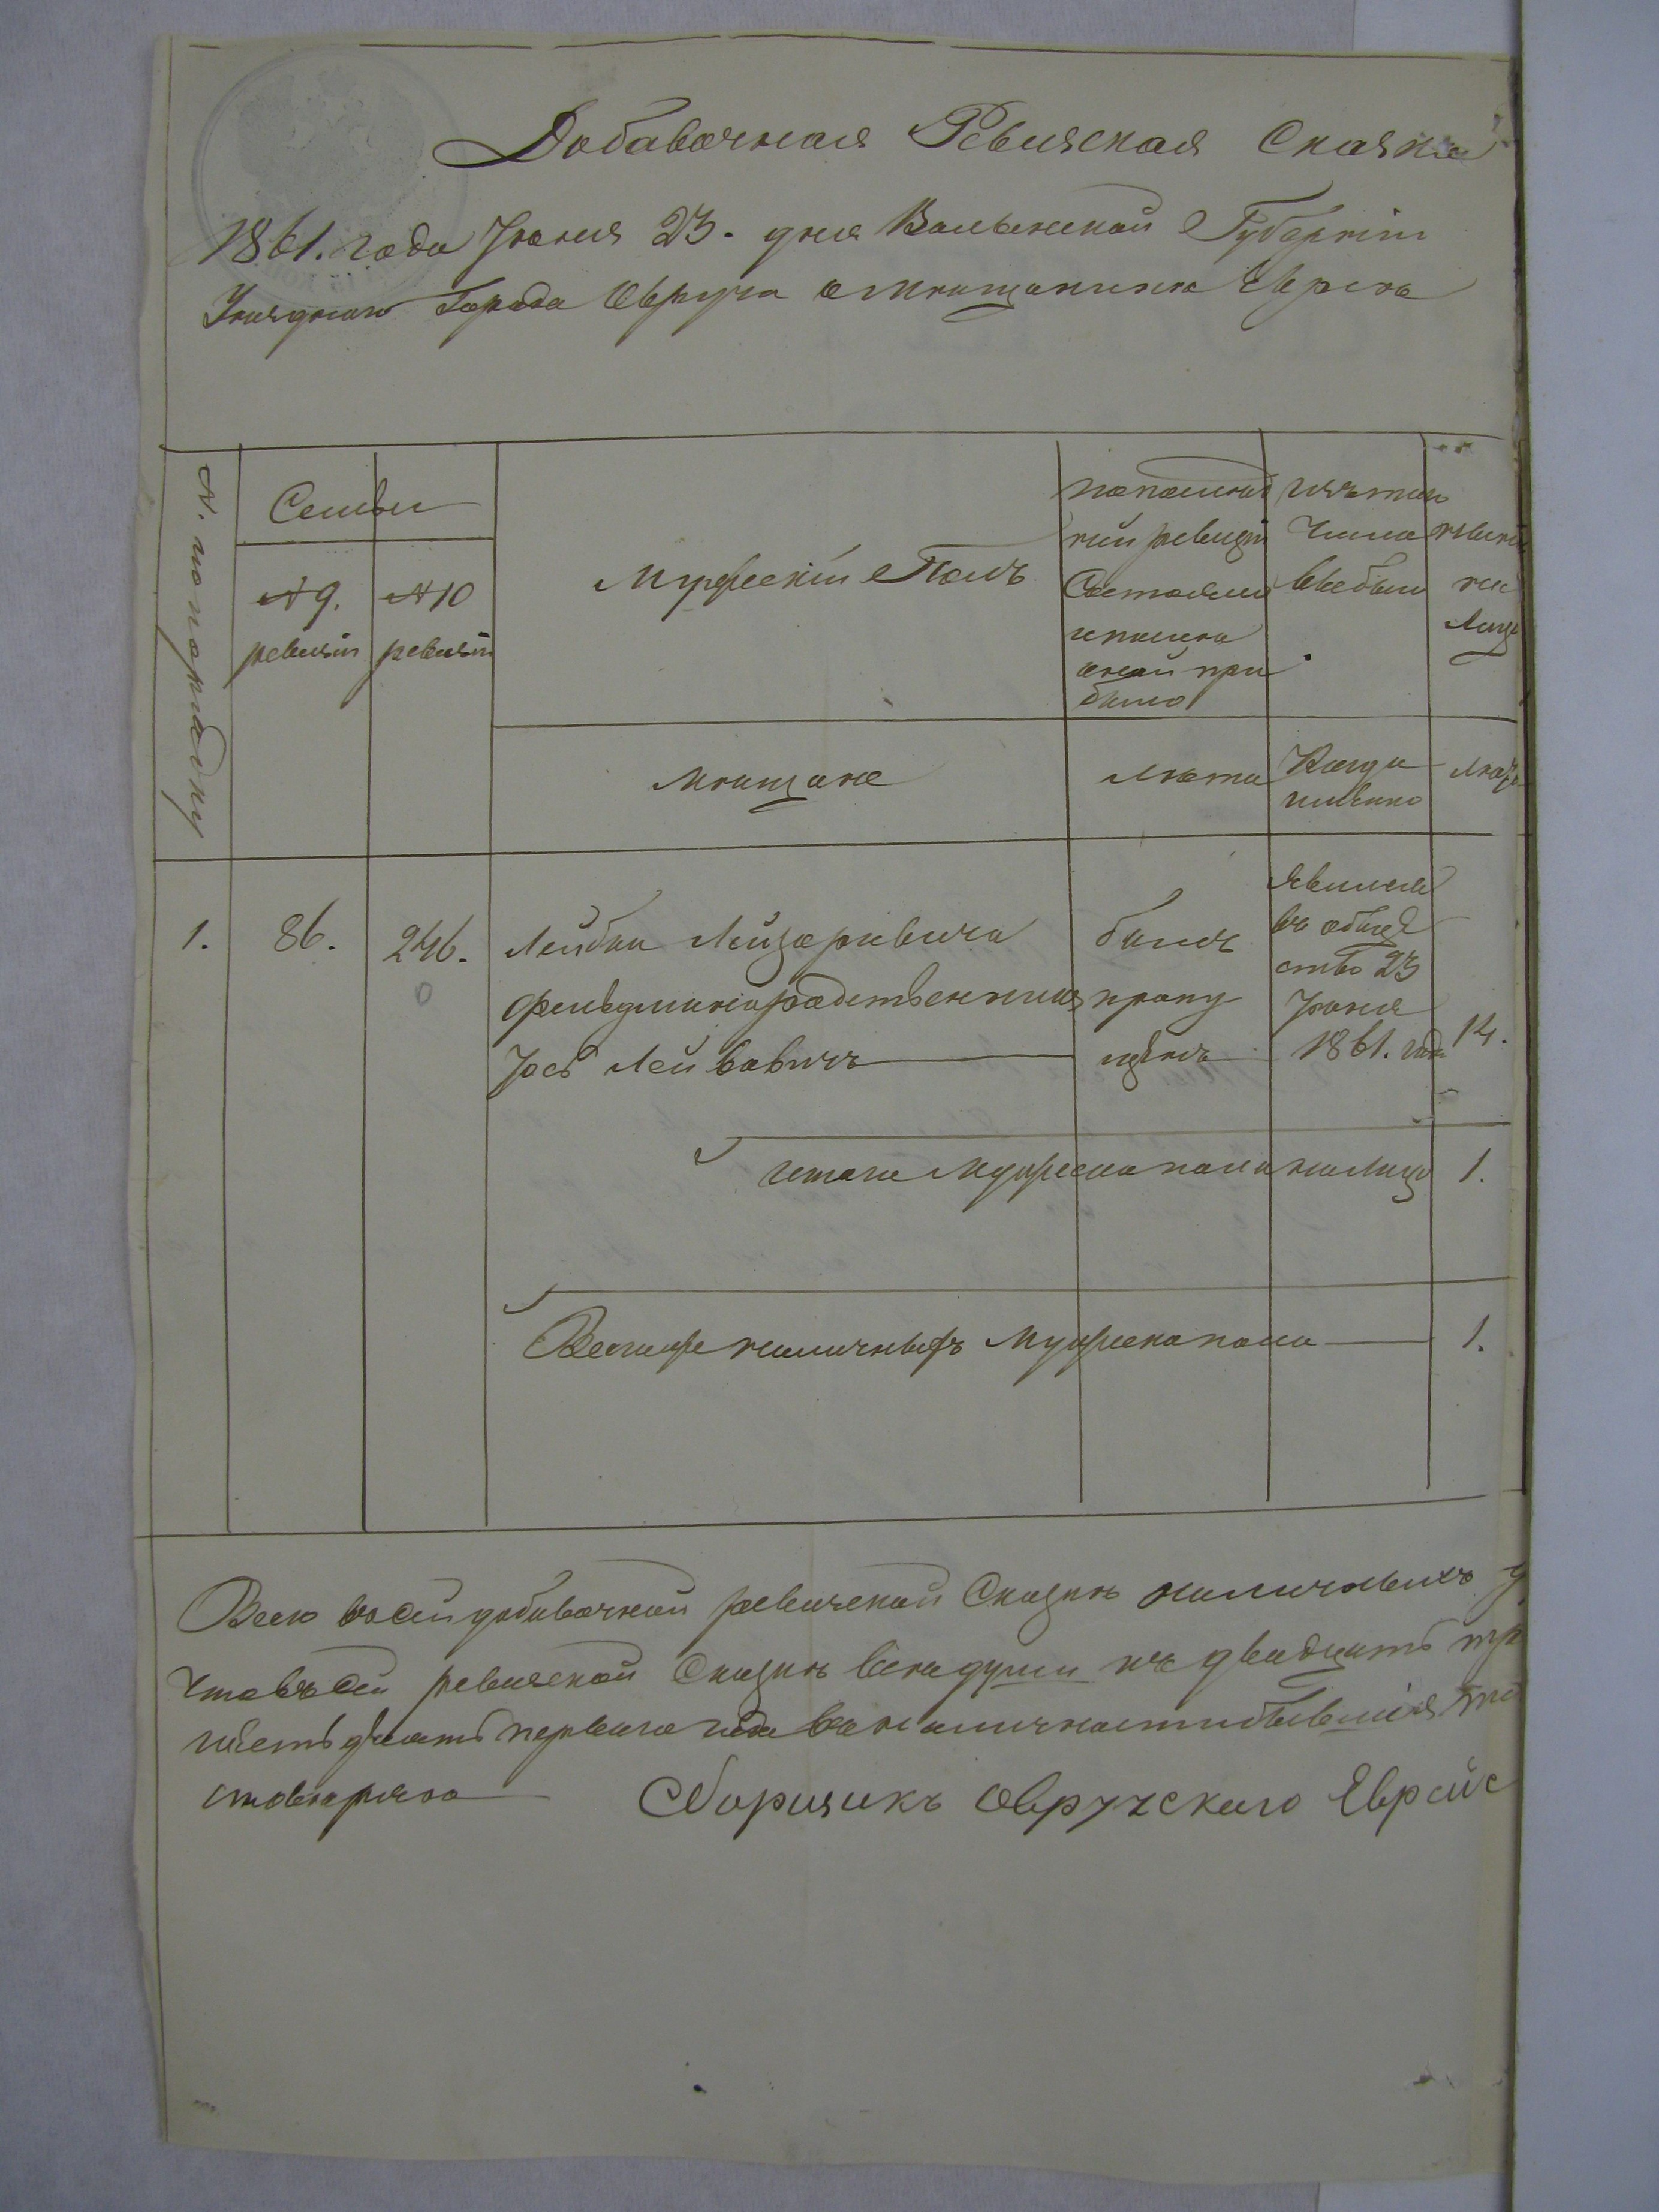 Добавочная Ревизская Сказка
1861. года Іюня 23. дня Волынской Губерніи
Уѣзднаго Города Овруча о мѣщанинѣ Евреѣ
№. по порядку
Семьи
№ 9. ревизіи
№ 10 ревизіи
Мужескій Полъ
по послѣд
ней ревизіи
Состояло
и послѣ
оной при
было
изъ того
числа
выбыло
нынѣ
на
лицо
мѣщане
лѣта
Когда
именно
лѣта
1.
86.
246.
0
Лейбы Лейзоровича
Фельдмана родственникъ
Іосъ Лейбовичъ
былъ
пропу
щенъ
Явился
въ обще
ство 23
Іюня
1861. года
14.
итого мужеска пола на лицо 1.
Всего же наличныхъ мужеска пола 1.
Всего въ сей добавочной ревизской Сказкѣ наличныхъ
Что въ сей ревизской Сказкѣ всѣ души къ двадцать
шестьдесятъ перваго года въ наличности бывшія
Сборщикъ Овручскаго Еврейс